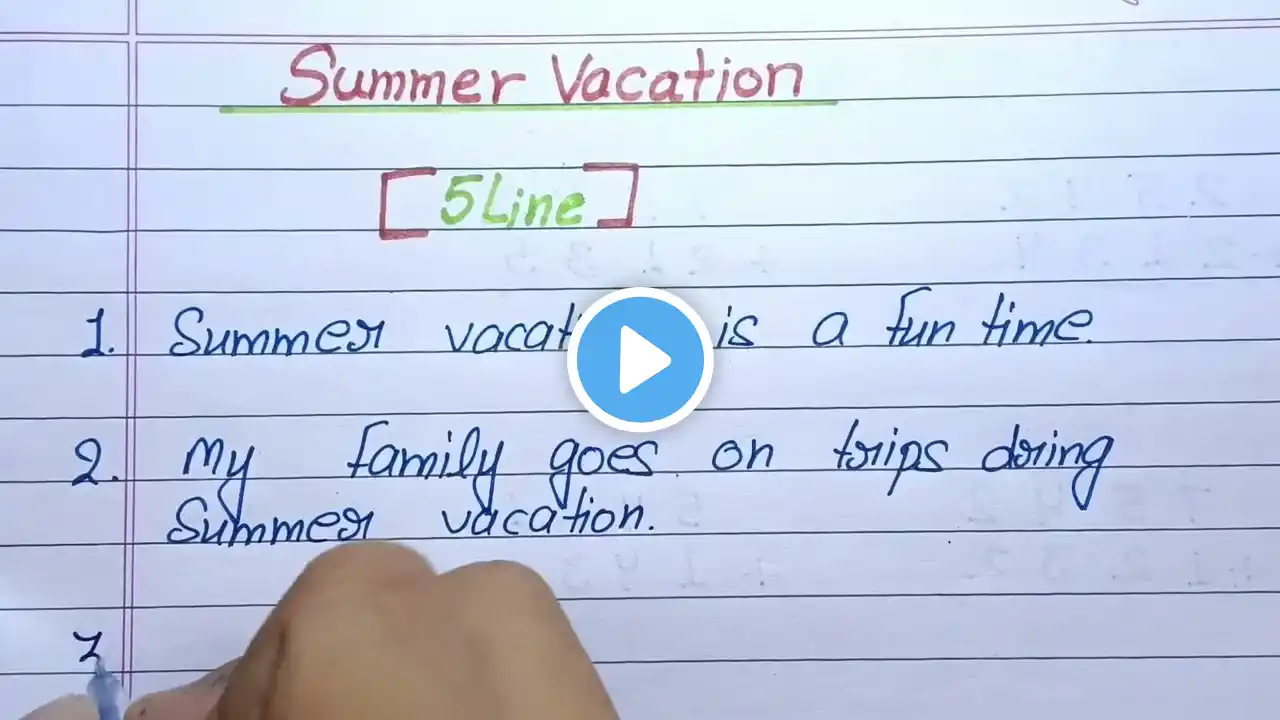 Summer Vacation
[5 Line]
1. Summer vacati is a fun time.
2. My family goes on trips dring
Summer vacation.